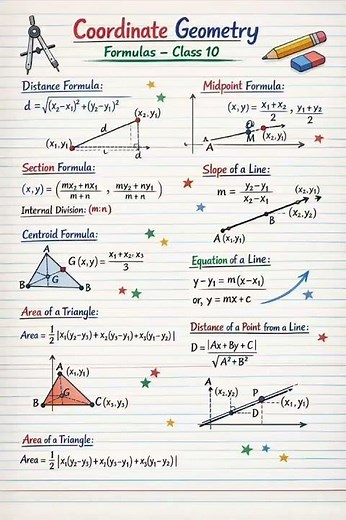 Coordinate Geometry
Formulas – Class 10
Distance Formula:
d = √(x₂-x₁)²+(y₂-y₁)²
(x₂,y₁)
d
(x₁,y₁)
d
Midpoint Formula:
(x,y) = x₁+x₂/2 , y₁+y₂/2
M
(x₂,y₁)
A
Section Formula:
(x,y) = (mx₂+nx₁/m+n , my₂+ny₁/m+n)
Internal Division: (m:n)
Slope of a Line:
m = y₂-y₁/x₂-x₁
(x₁,y₁)
(x₂,y₂)
B
A (x₁,y₁)
Centroid Formula:
A
G (x,y) = x₁+x₂.x₃/3
G
B
B
Equation of a Line:
y-y₁ = m(x-x₁)
or, y = mx+c
Area of a Triangle:
Area = 1/2 |x₁(y₂-y₃)+x₂(y₃-y₁)+x₃(y₁-y₂)|
Distance of a Point from a Line:
D = |Ax+By+C|/√A²+B²
A (x₁,y₁)
G
B
C (x₁,y₃)
A
(x₂,y₂)
P
(x₁,y₁)
D
Area of a Triangle:
Area = 1/2 |x₁(y₂-y₃)+x₂(y₃-y₁)+x₃(y₁-y₂)|